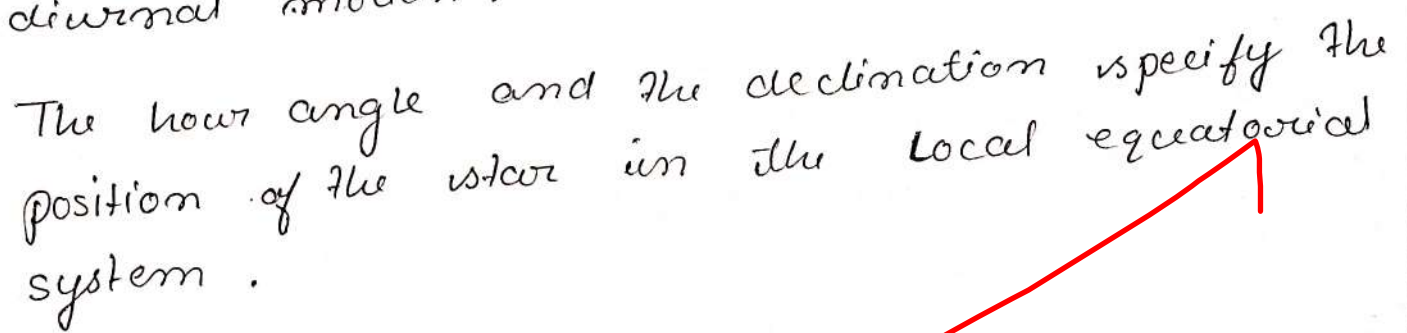 diurnal
The hour angle and the declination specify the
position of the star in the Local equatorial
system.